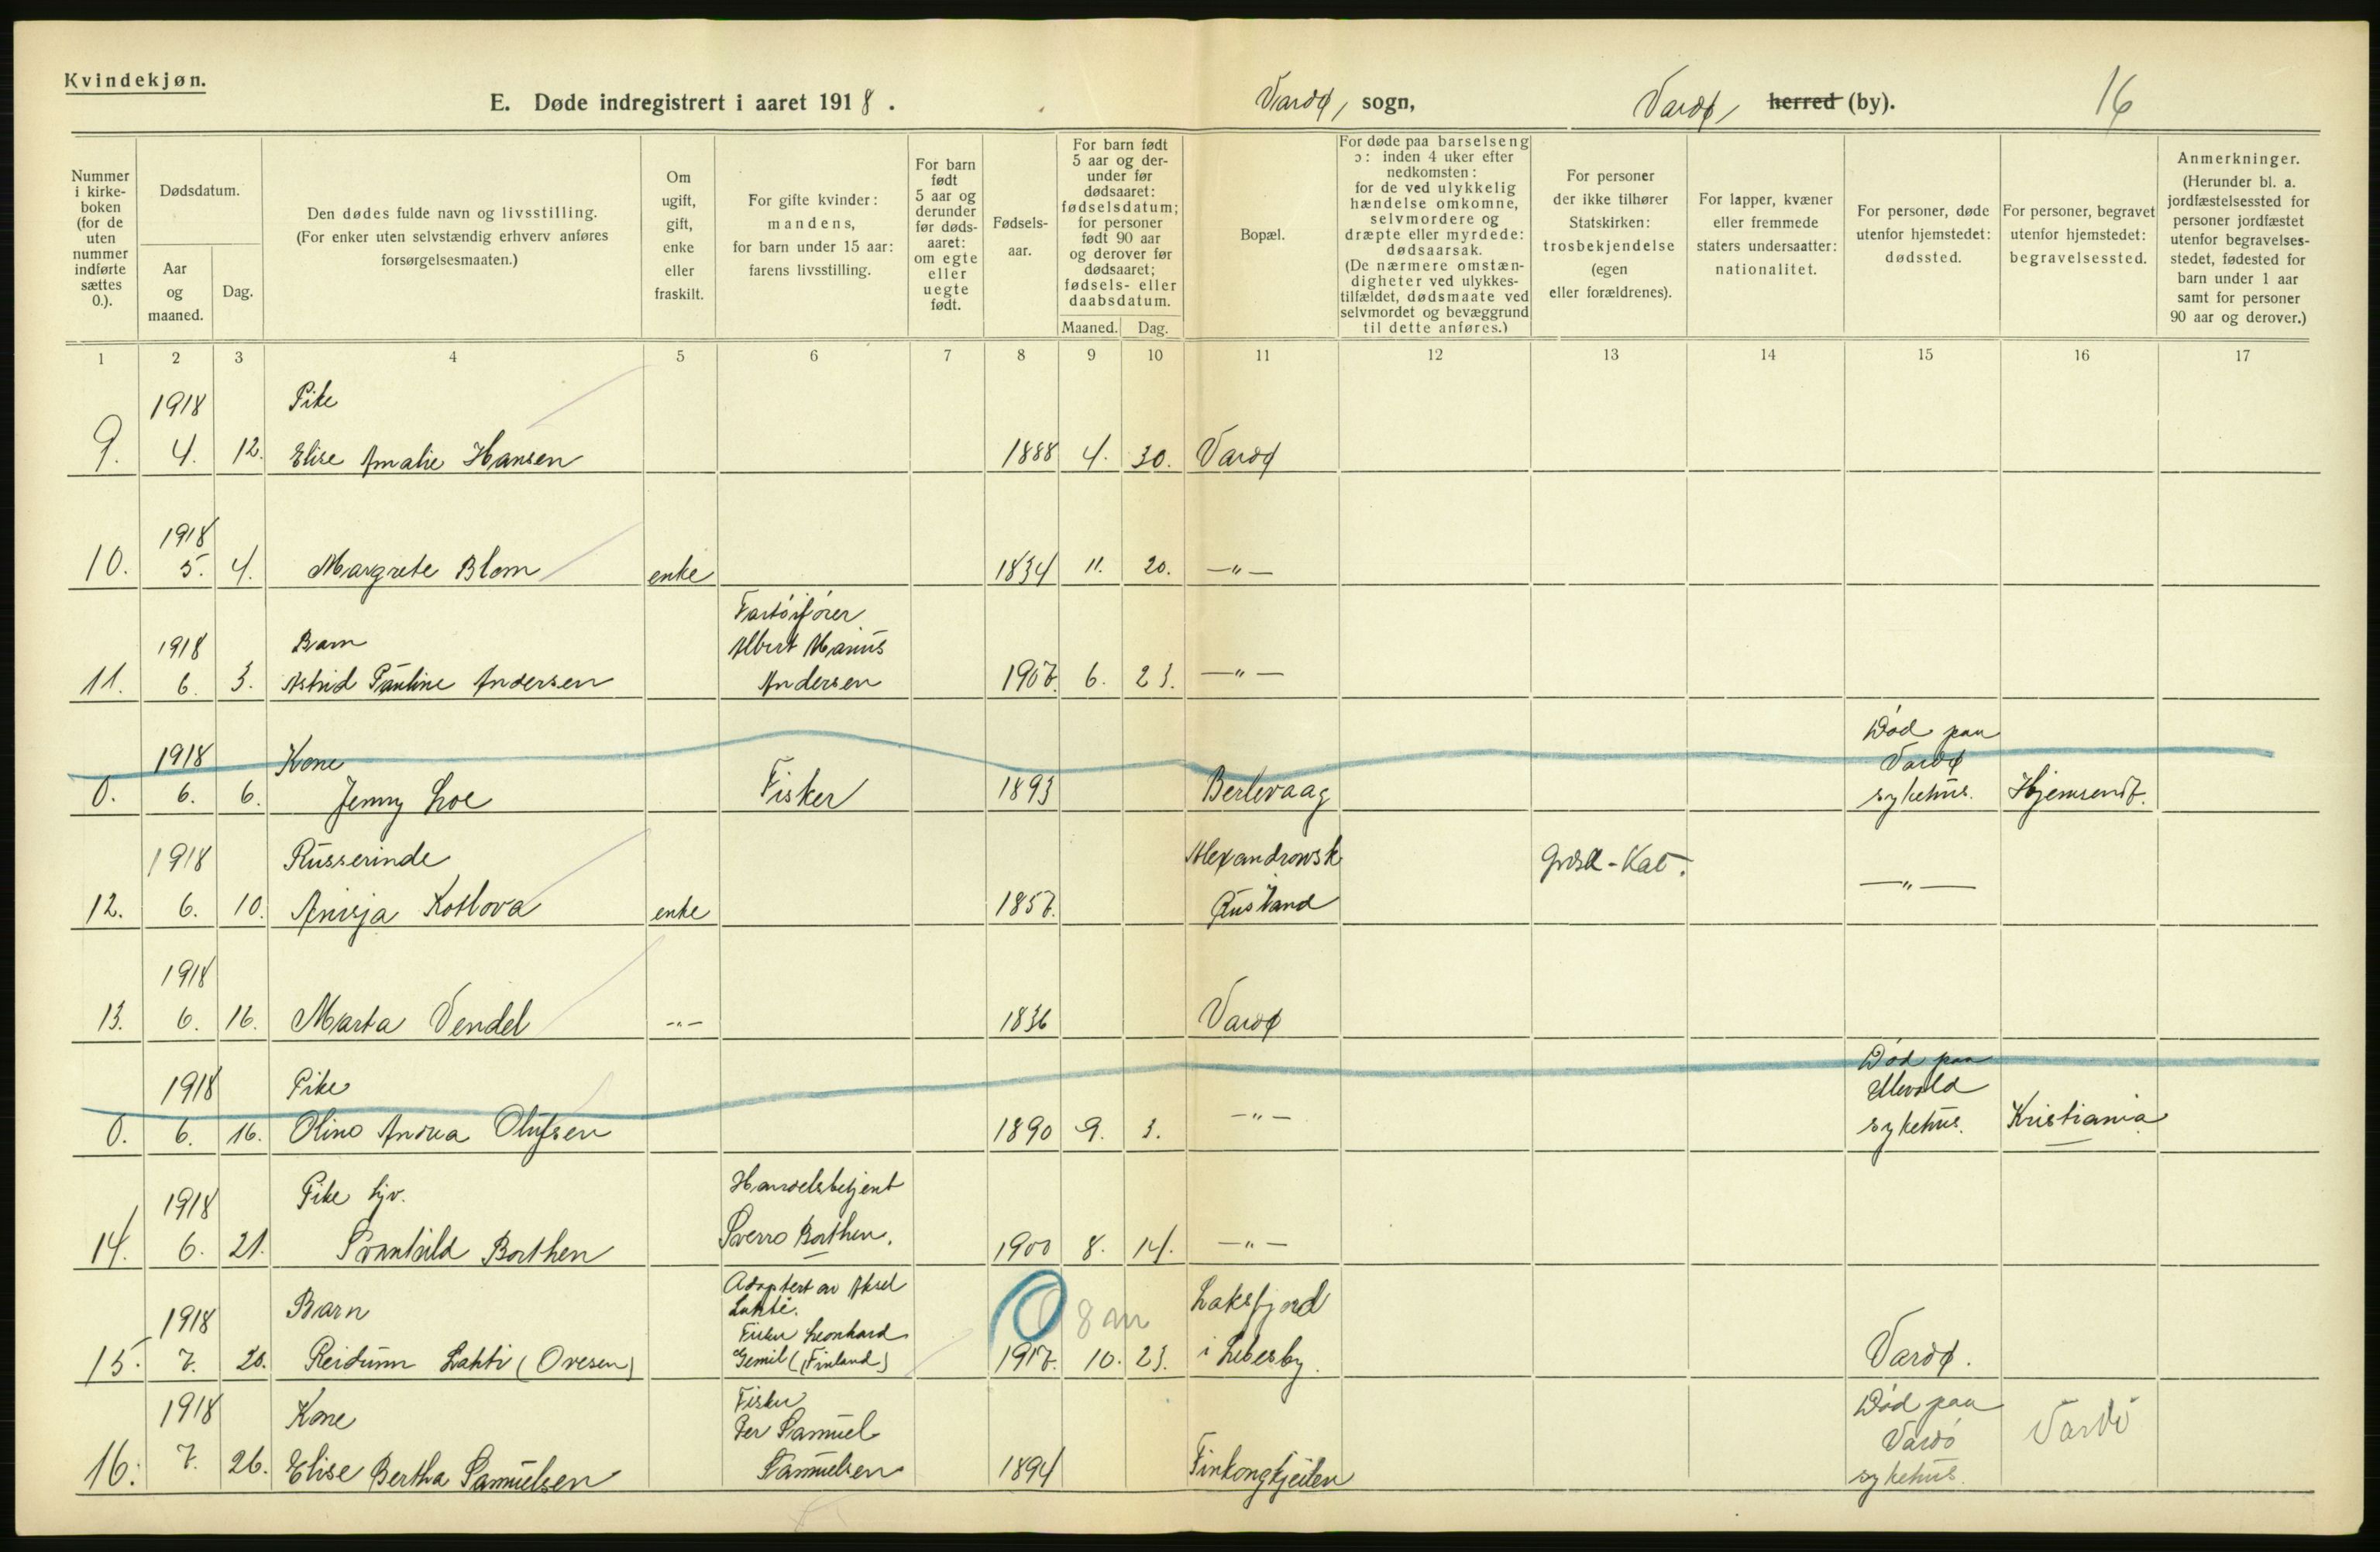 Kvindekjøn.
E. Døde indregistrert i aaret 1918.
Vardø, sogn,
Vardø, herred (by).
16
Nummer i kirkeboken (for de uten nummer indførte sættes 0.).
Dødsdatum.
Aar og maaned.
Dag.
Den dødes fulde navn og livsstilling.
(For enker uten selvstændig erhverv anføres forsørgelsesmaaten.)
Om ugift, gift, enke eller fraskilt.
For gifte kvinder: mandens, for barn under 15 aar: farens livsstilling.
For barn født 5 aar og derunder før dødsaaret: om egte eller uegte født.
Fødselsaar.
For barn født 5 aar og derunder før dødsaaret: fødselsdatum; for personer født 90 aar og derover før dødsaaret; fødsels- eller daabsdatum.
Maaned. Dag.
Bopæl.
For døde paa barselseng ɔ: inden 4 uker efter nedkomsten: for de ved ulykkelig hændelse omkomne, selvmordere og dræpte eller myrdede: dødsaarsak. (De nærmere omstændigheter ved ulykkestilfældet, dødsmaate ved selvmordet og bevæggrund til dette anføres.)
For personer der ikke tilhører Statskirken: trosbekjendelse (egen eller forældrenes).
For lapper, kvæner eller fremmede staters undersaatter: nationalitet.
For personer, døde utenfor hjemstedet: dødssted.
For personer, begravet utenfor hjemstedet: begravelsessted.
Anmerkninger.
(Herunder bl. a. jordfæstelsessted for personer jordfæstet utenfor begravelsesstedet, fødested for barn under 1 aar samt for personer 90 aar og derover.)
1 2 3 4 5 6 7 8 9 10 11 12 13 14 15 16 17
1918 Pike
9. 4. 12. Elise Amalie Hansen 1888 4. 30. Vardø
1918
10. 5. 4. Margrete Blom enke 1834 11. 20. —"—
Fartöiförer
1918 Barn Albert Marius
11. 6. 3. Astrid Pauline Andersen Andersen 1907. 6. 23. —"—
Død paa
1918 Kone Vardø
0. 6. 6. Jenny Loe Fisker 1893 Berlevaag sykehus. Hjemsendt.
1918 Russerinde Alexandrowsk Græsk-Kat.
12. 6. 10. Anisja Kotlova enke 1857. Rusland —"—
1918
13. 6. 16. Marta Vendel —"— 1836 Vardø
Død paa
1918 Pike Ullevold
0. 6. 16. Olino Andrea Olufsen 1890 9. 3. —"— sykehus. Kristiania
1918 Pike hjv. Handelsbetjent
14. 6. 21. Svanhild Borthen Sverro Borthen. 1900 8. 14. —"—
Adoptert av Aksel
Lahti.
1918 Barn Fisker Leonhard 0 8 m Laksfjord
15. 7. 20. Reidunn Lahti (Ovesen) Gemil (Finland) 1917. 10. 23. i Lebesby. Vardø.
Fisker Død paa
1918 Kone Per Samuel Vardö Vardö
16. 7. 26. Elise Bertha Samuelsen Samuelsen 1894 Finkongkjeilen sykehus.